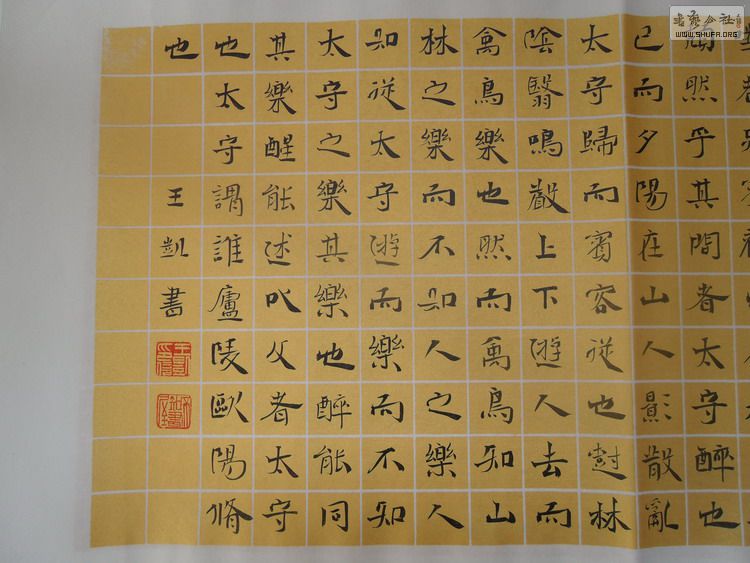 然乎其間者太守醉也
已而夕陽在山人影散亂
太守歸而賓客從也樹林
陰翳鳴聲上下遊人去而
禽鳥樂也然而禽鳥知山
林之樂而不知人之樂人
知從太守遊而樂而不知
太守之樂其樂也醉能同
其樂醒能述以文者太守
也太守謂誰廬陵歐陽脩
也
王凱書
WWW.SHUFA.ORG